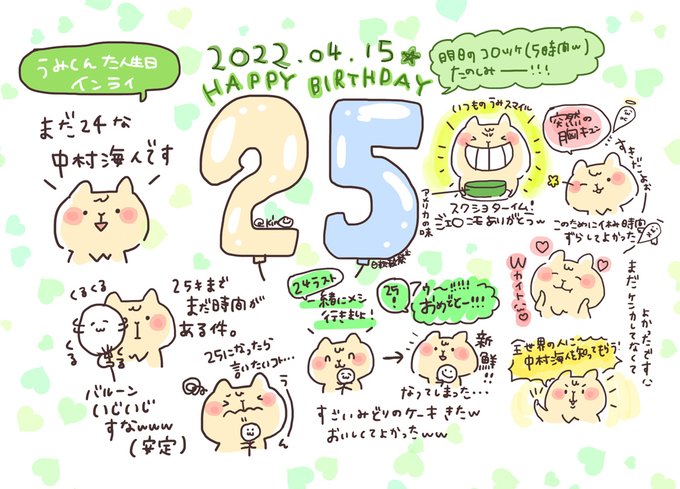 うみくんた人生日
インライ
2022.04.15
HAPPY BIRTHDAY
明日のコロッケ(5時間w)
たのしみ――!!!
まだ24な
中村海人です
25
@kin
いつものうみスマイル
アメリカの味
スクショタイム!
ありがとうw
突然の
胸キュン
すきだなぁぉ
このために休み時間
ずらしてよかった
Wカイト!!
まだケンカしてなくて
よかったです
全世界の人に
中村海人を知ってもらう
25才まで
まだ時間が
ある件。
くるくる
くる
くる
バルーン
いじいじ
すなwww
(安定)
25になったら
言いたいコト…
う〜ん
24ラスト
一緒にメシ
行きましょ!
25!
ウ〜!!!!!
おめでとー!!!
新鮮!!
なってしまった…
すごいみどりのケーキきたw
おいしくてよかったww